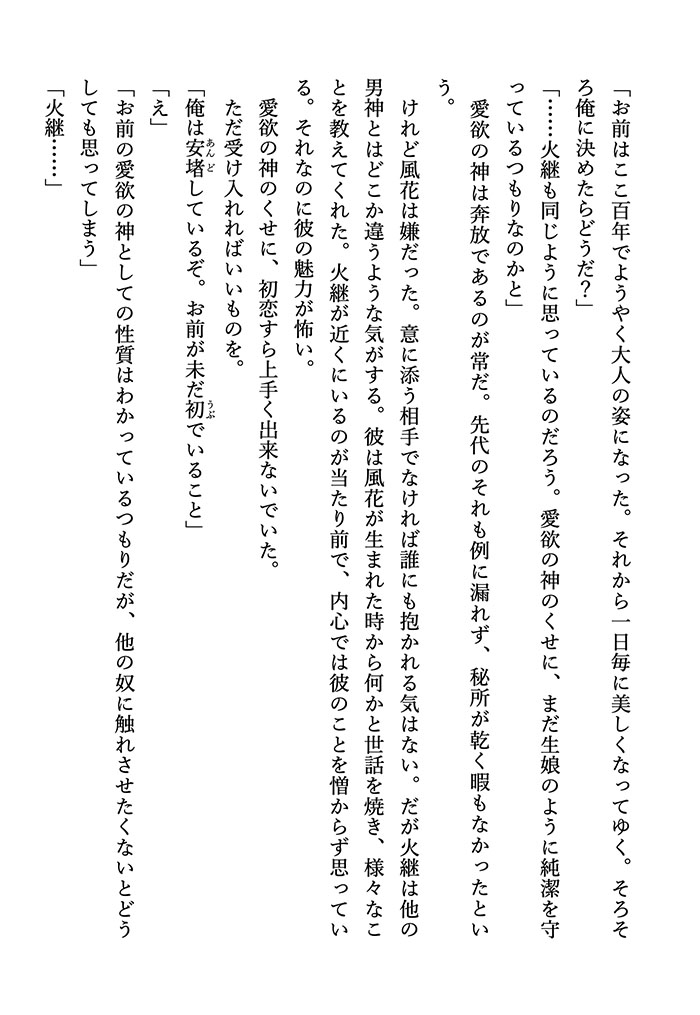 「お前はここ百年でようやく大人の姿になった。それから一日毎に美しくなってゆく。そろそ
ろ俺に決めたらどうだ？」
「……火継も同じように思っているのだろう。愛欲の神のくせに、まだ生娘のように純潔を守
っているつもりなのかと」
愛欲の神は奔放であるのが常だ。先代のそれも例に漏れず、秘所が乾く暇もなかったとい
う。
けれど風花は嫌だった。意に添う相手でなければ誰にも抱かれる気はない。だが火継は他の
男神とはどこか違うような気がする。彼は風花が生まれた時から何かと世話を焼き、様々なこ
とを教えてくれた。火継が近くにいるのが当たり前で、内心では彼のことを憎からず思ってい
る。それなのに彼の魅力が怖い。
愛欲の神のくせに、初恋すら上手く出来ないでいた。
ただ受け入れればいいものを。
「俺は安堵あんどしているぞ。お前が未だ初うぶでいること」
「え」
「お前の愛欲の神としての性質はわかっているつもりだが、他の奴に触れさせたくないとどう
しても思ってしまう」
「火継……」